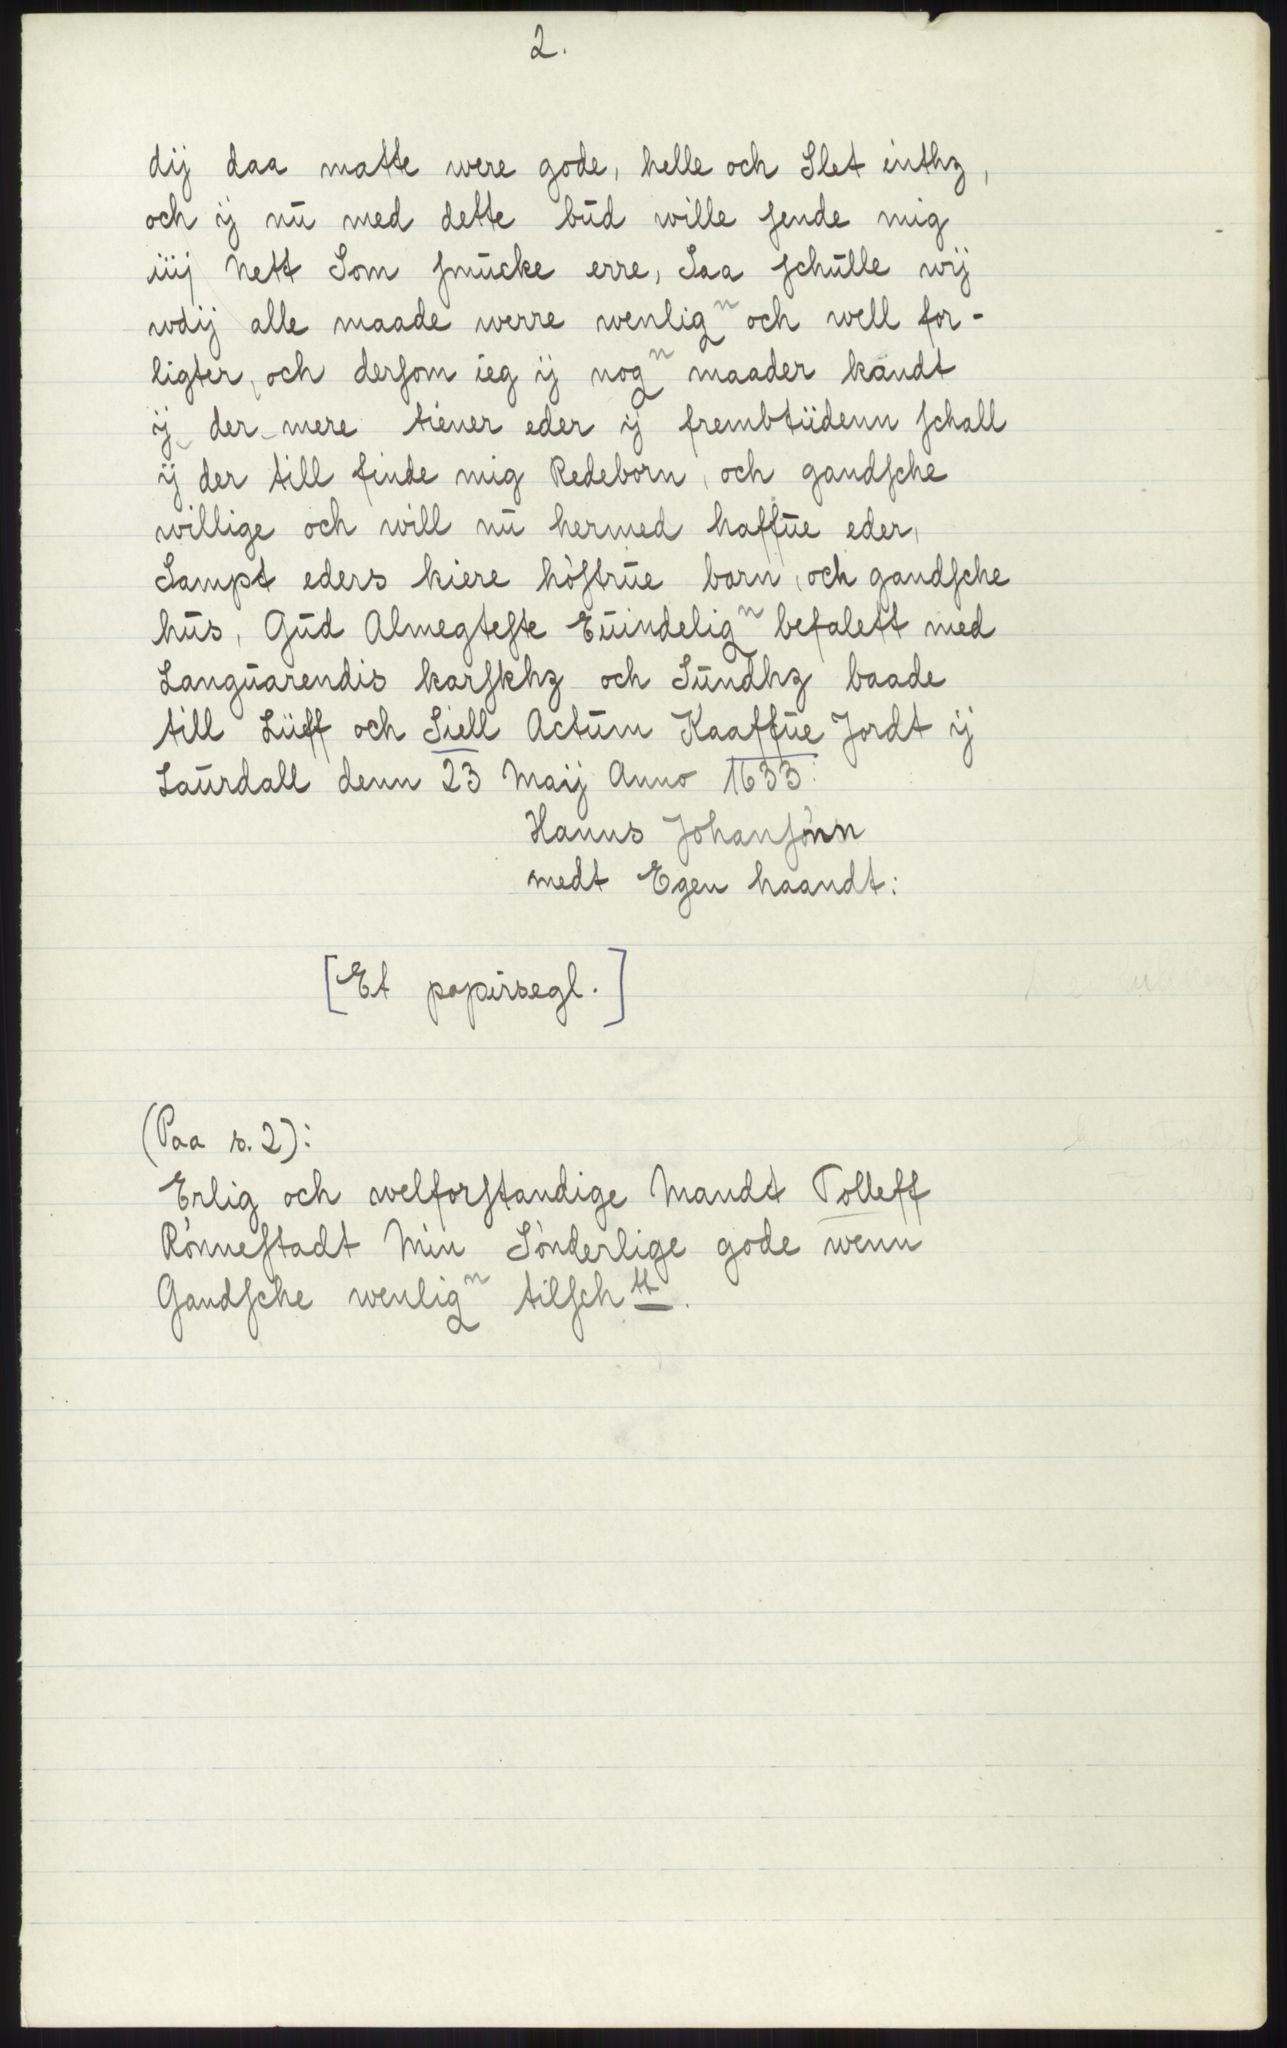 2.
dij daa matte were gode, helle och Slet inthz,
och ij nu med dette bud wille sende mig
iiij Nett Som smucke erre, Saa schulle wij
wdij alle maade werre wenligⁿ och well for-
ligter, och dersom ieg ij nogⁿ maader kandt
ij der mere tiener eder ij frembtiidenn schall
ij der till finde mig Redeborn, och gandsche
willige och will nu hermed haffue eder,
Sampt eders kiere höstrue born, och gandsche
hus, Gud Almegteste Euindeligⁿ befalett med
Languarendis karskhz och Sundhz baade
till Liiff och Siell Actum Kaaffue Jordt ij
Laurdall denn 23 Maij Anno 1633:
Hanns Johansönn
medt Egen haandt:
[Et papirsegl.]
(Paa s. 2):
Erlig och welforstandige Mandt Tolleff
Rönnestadt Min Sönderlige gode wenn
Gandsche wenligⁿ tilsch tt.